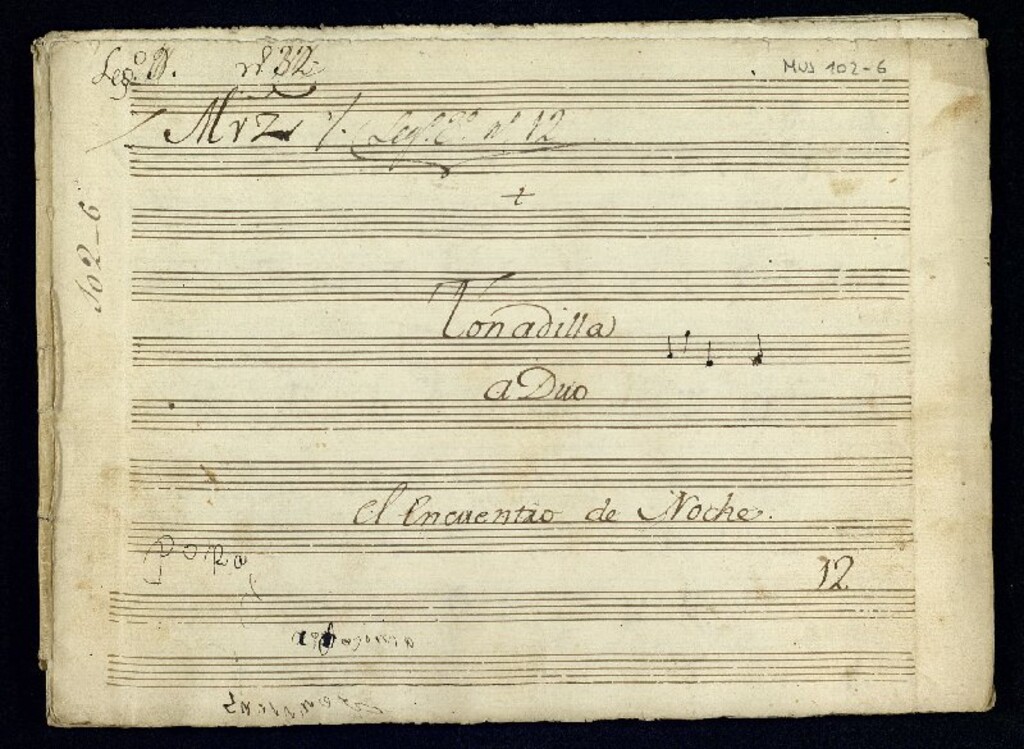 Leg.º n.º 32
MUS 102-6
Mrz / Leg.º 2.º n.º 12
102-6
Tonadilla
a Duo
el Encuentro de Noche.
12